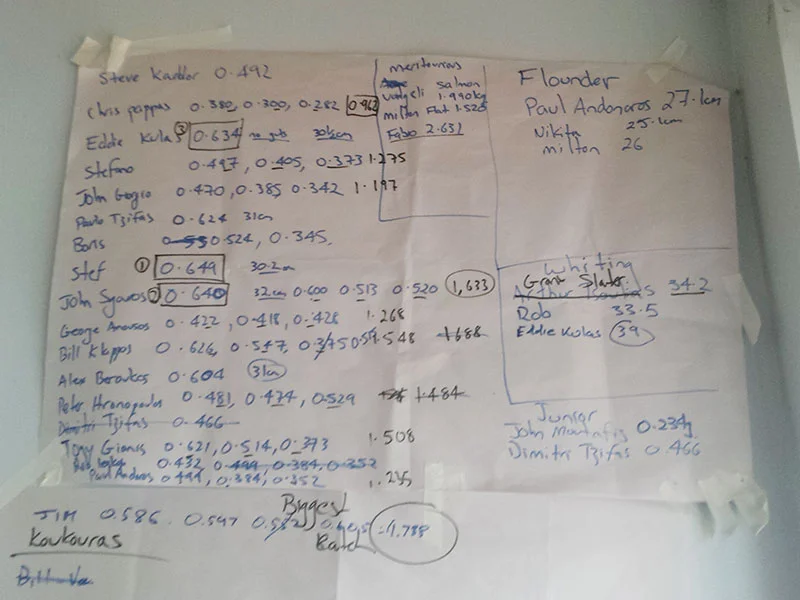 Steve Karddor 0.492
Chris pappas 0.380, 0.300, 0.282 0.962
Eddie Kulas ③ 0.634 no guts 30½cm
Stefano 0.497, 0.405, 0.373 1.275
John Gogio 0.470, 0.385 0.342 1.197
Paulo Tzifas 0.624 31cm
Boris 0.524, 0.345.
Stef ① 0.649 30.2cm
John Sgouros ② 0.640 32cm 0.600 0.513 0.520 1,633
George Anousos 0.422, 0.418, 0.428 1.268
Bill Klappos 0.626, 0.547, 1.548 1688
Alex 0.604 31cm
Peter 0.481, 0.474, 0.529 1.484
Dimitri Tzifas 0.466
Tony Gianis 0.621, 0.514, 0.373 1.508
0.432 0.499, 0.384, 0.352
Paul Andros 0.499, 0.384, 0.352 1.235
JIM 0.586, 0.597 0.605 = 1.788
Koukouras
Biggest
Batch
meritourious
salmon
vangeli 1.990kg
milton Flat 1.520
Fabo 2.631
Flounder
Paul Andonaros 27.1cm
Nikita 25.1cm
milton 26
Whiting
Grant Slater 34.2
Rob 33.5
Eddie Kulas 39
Junior
John 0.234g
Dimitri Tzifas 0.466